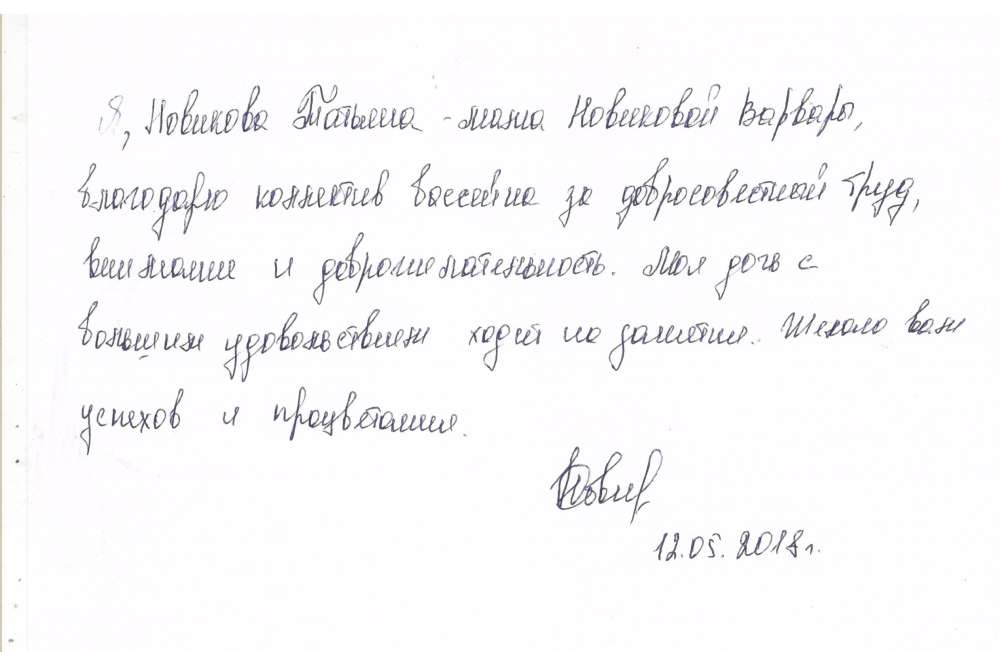 Я, Новикова Татьяна - мама Новиковой Варвары,
благодарю коллектив бассейна за добросовестный труд,
внимание и доброжелательность. Моя дочь с
большим удовольствием ходит на занятия. Желаю вам
успехов и процветания.
12.05.2018г.